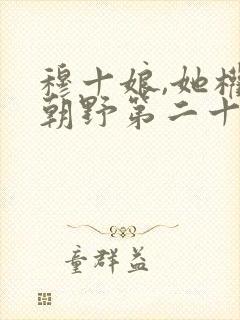 穆十娘,她权
朝野第二十
童群益